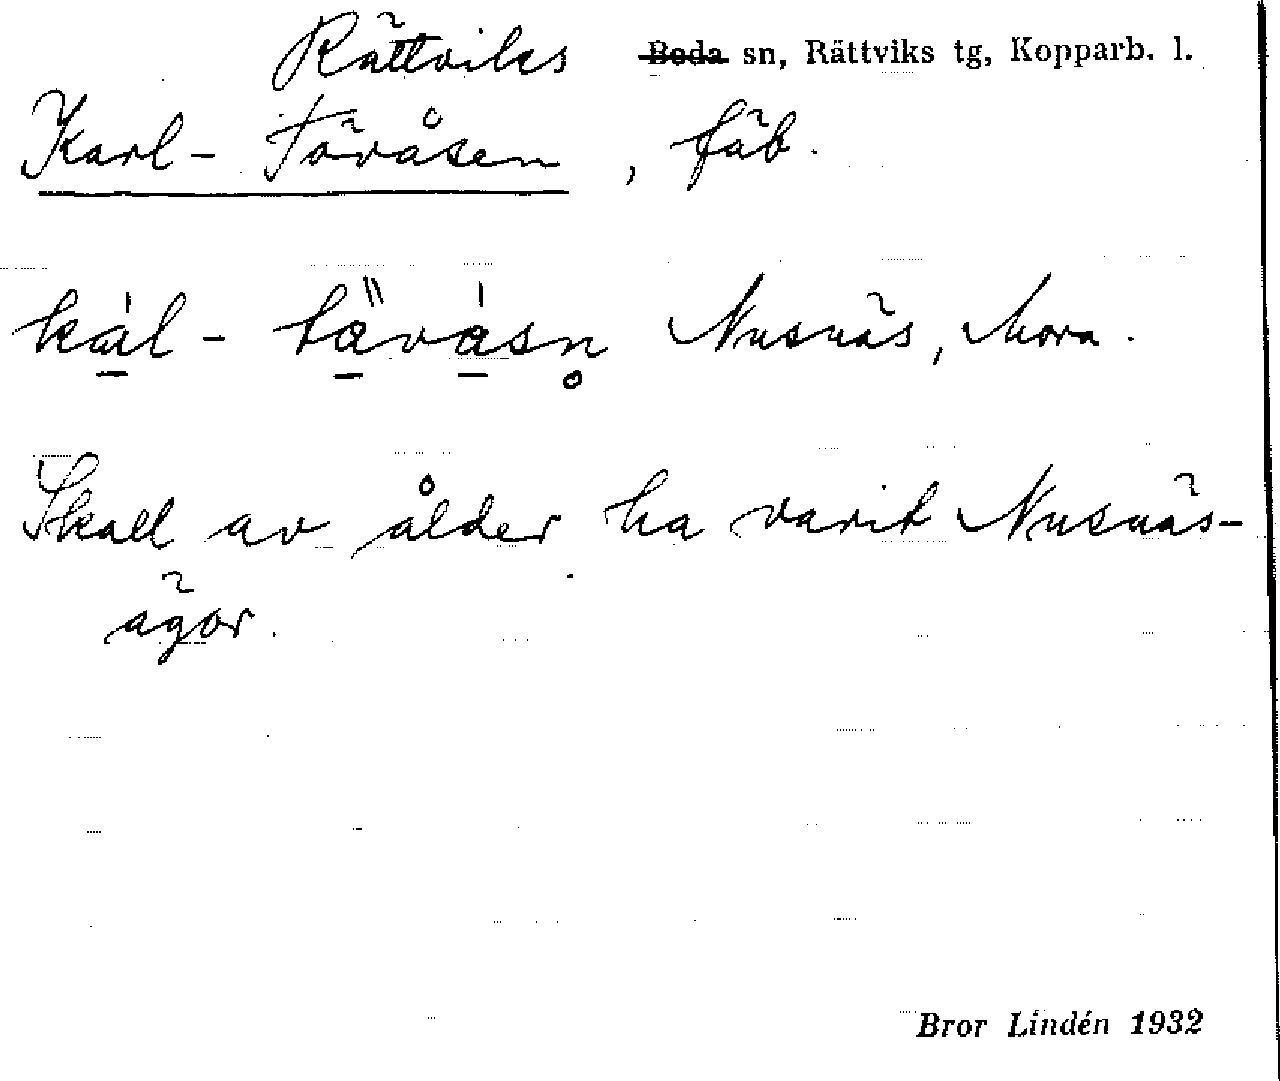 Rättviks ~~Boda~~ sn, Rättviks tg, Kopparb. l.
Karl-Töväsen, fäb.
kàl-tövàsn̥ Nusnäs, Mora.
Skall av ålder ha varit Nusnäs-
ägor.
Bror Lindén 1932